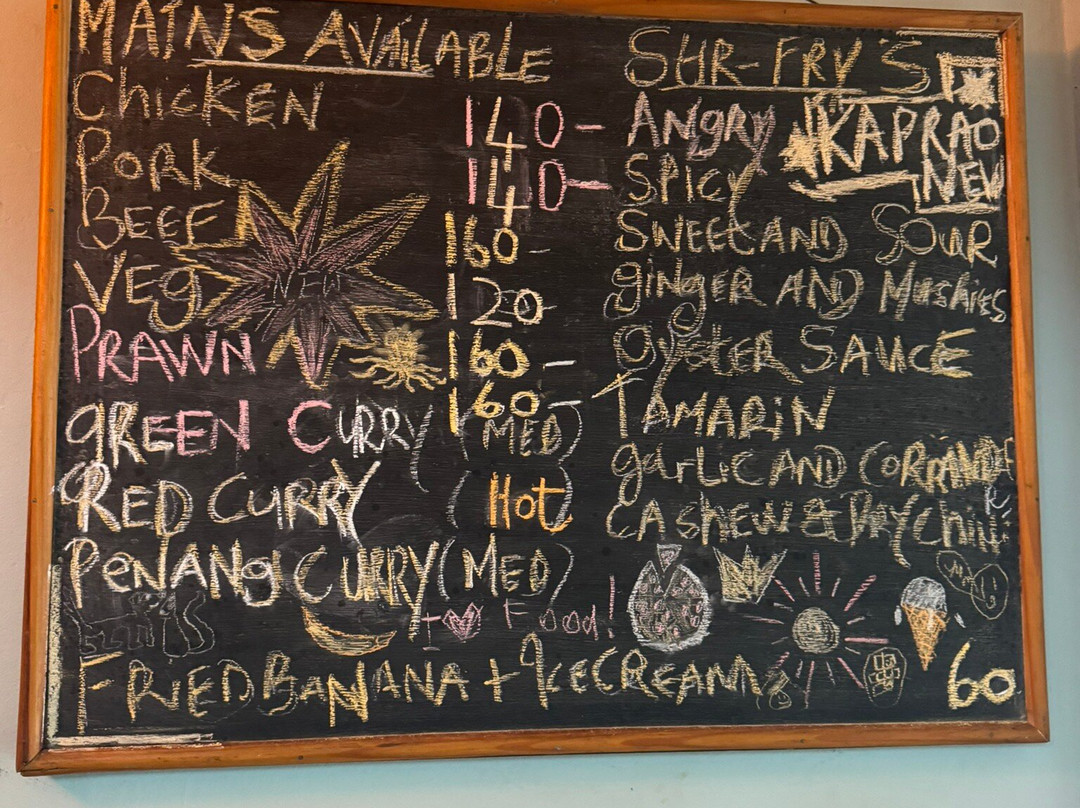 MAINS AVAILABLE
CHICKEN 140-
PORK 140-
BEEF 160-
VEG 120-
NEW
PRAWN 160-
160-
GREEN CURRY (MED)
RED CURRY (Hot)
PENANG CURRY (MED)
I ♥ Food!
FRIED BANANA + ICECREAM 60
STIR-FRY'S
ANGRY KAPRAO
SPICY NEW
SWEET AND SOUR
GINGER AND MUSHIES
OYSTER SAUCE
TAMARIN
GARLIC AND CORRANDER
CASHEW & DRY CHILLI